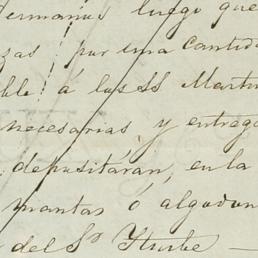 Hermanus luego que
zas, por una cantid
ble á los SS Martin
necesarias, y entrega
depositáran, en la
mantas ó algodon
del Sr Yturbe —